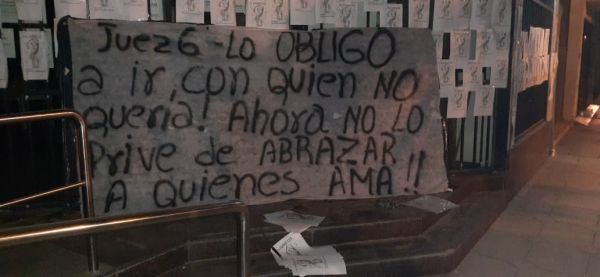 Juez 6 - Lo OBLIGO
a ir, con quien NO
queria! Ahora NO LO
Prive de ABRAZAR
A QUIENES AMA!!